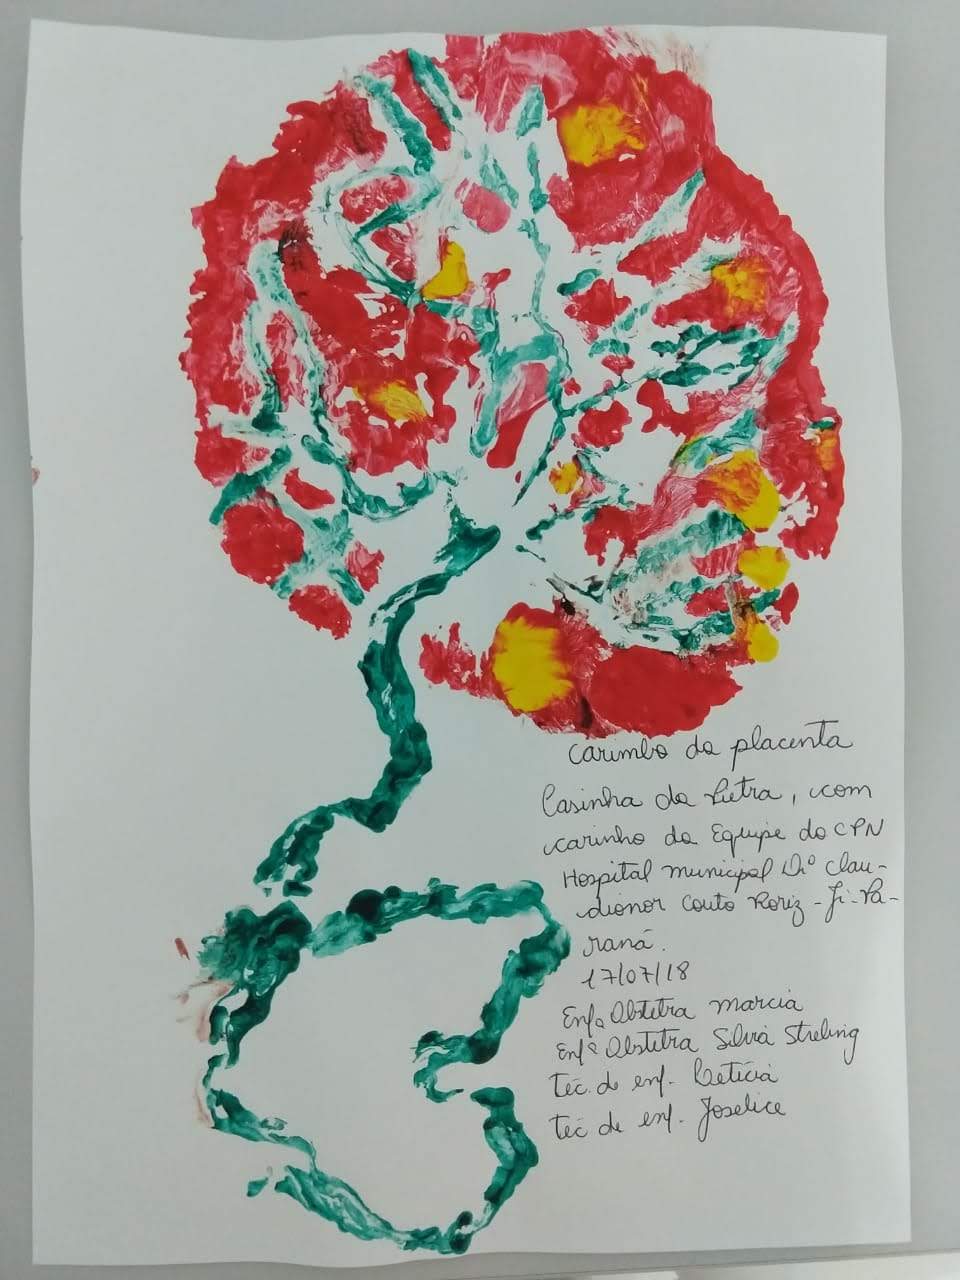 carimbo da placenta
Casinha da Pietra, com
carinho da Equipe do CPN
Hospital municipal Drº Clau-
dionor Couto Roriz - Ji-Pa-
raná.
17/07/18
Enfª Obstetra Marcia
Enfª Obstetra Silvia Streling
téc. de enf. Leticia
téc de enf. Joselice